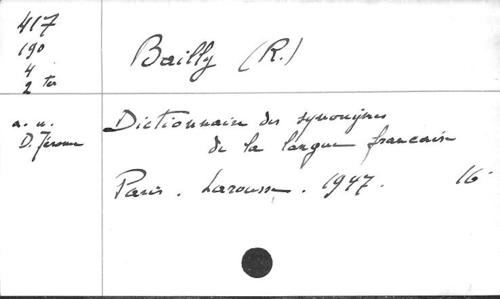 417
190
4
2 ter
Bailly (R.)
a. u.
D. Jérome
Dictionnaire des synonymes
de la langue française
Paris. Larousse. 1947. 16°